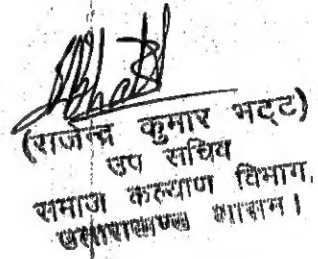 (राजेन्द्र कुमार भट्ट)
उप सचिव
समाज कल्याण विभाग,
उत्तराखण्ड शासन।